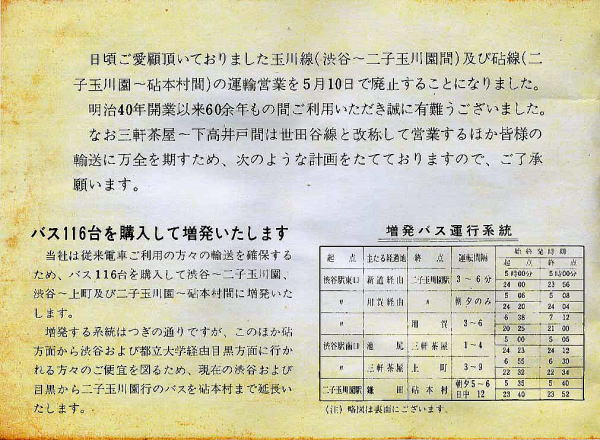 日頃ご愛顧頂いておりました玉川線(渋谷〜二子玉川園間)及び砧線(二
子玉川園〜砧本村間)の運輸営業を5月10日で廃止することになりました。
明治40年開業以来60余年もの間ご利用いただき誠に有難うございました。
なお三軒茶屋〜下高井戸間は世田谷線と改称して営業するほか皆様の
輸送に万全を期すため、次のような計画をたてておりますので、ご了承
願います。
バス116台を購入して増発いたします
当社は従来電車ご利用の方々の輸送を確保する
ため、バス116台を購入して渋谷〜二子玉川園、
渋谷〜上町及び二子玉川園〜砧本村間に増発いた
します。
増発する系統はつぎの通りですが、このほか砧
方面から渋谷および都立大学経由目黒方面に行か
れる方々のご便宜を図るため、現在の渋谷および
目黒から二子玉川園行のバスを砧本村まで延長い
たします。
増発バス運行系統
起点 主たる経過地 終点 運転間隔 始終発時刻
起点 終点
渋谷駅東口 新道経由 二子玉川園駅 3〜6分 5時00分 5時00分
24 00 23 56
〃 用賀経由 〃 朝夕のみ 5 06 5 08
24 20 24 04
〃 用賀 3〜6 6 38 7 12
20 25 21 00
渋谷駅南口 池尻 三軒茶屋 1〜4 5 00 5 05
24 23 24 12
〃 三軒茶屋 上町 3〜9 6 55 6 30
22 32 22 34
二子玉川園駅 鎌田 砧本村 朝夕5〜6 5 35 5 40
日中 12 23 40 23 52
(注) 略図は表面にございます。